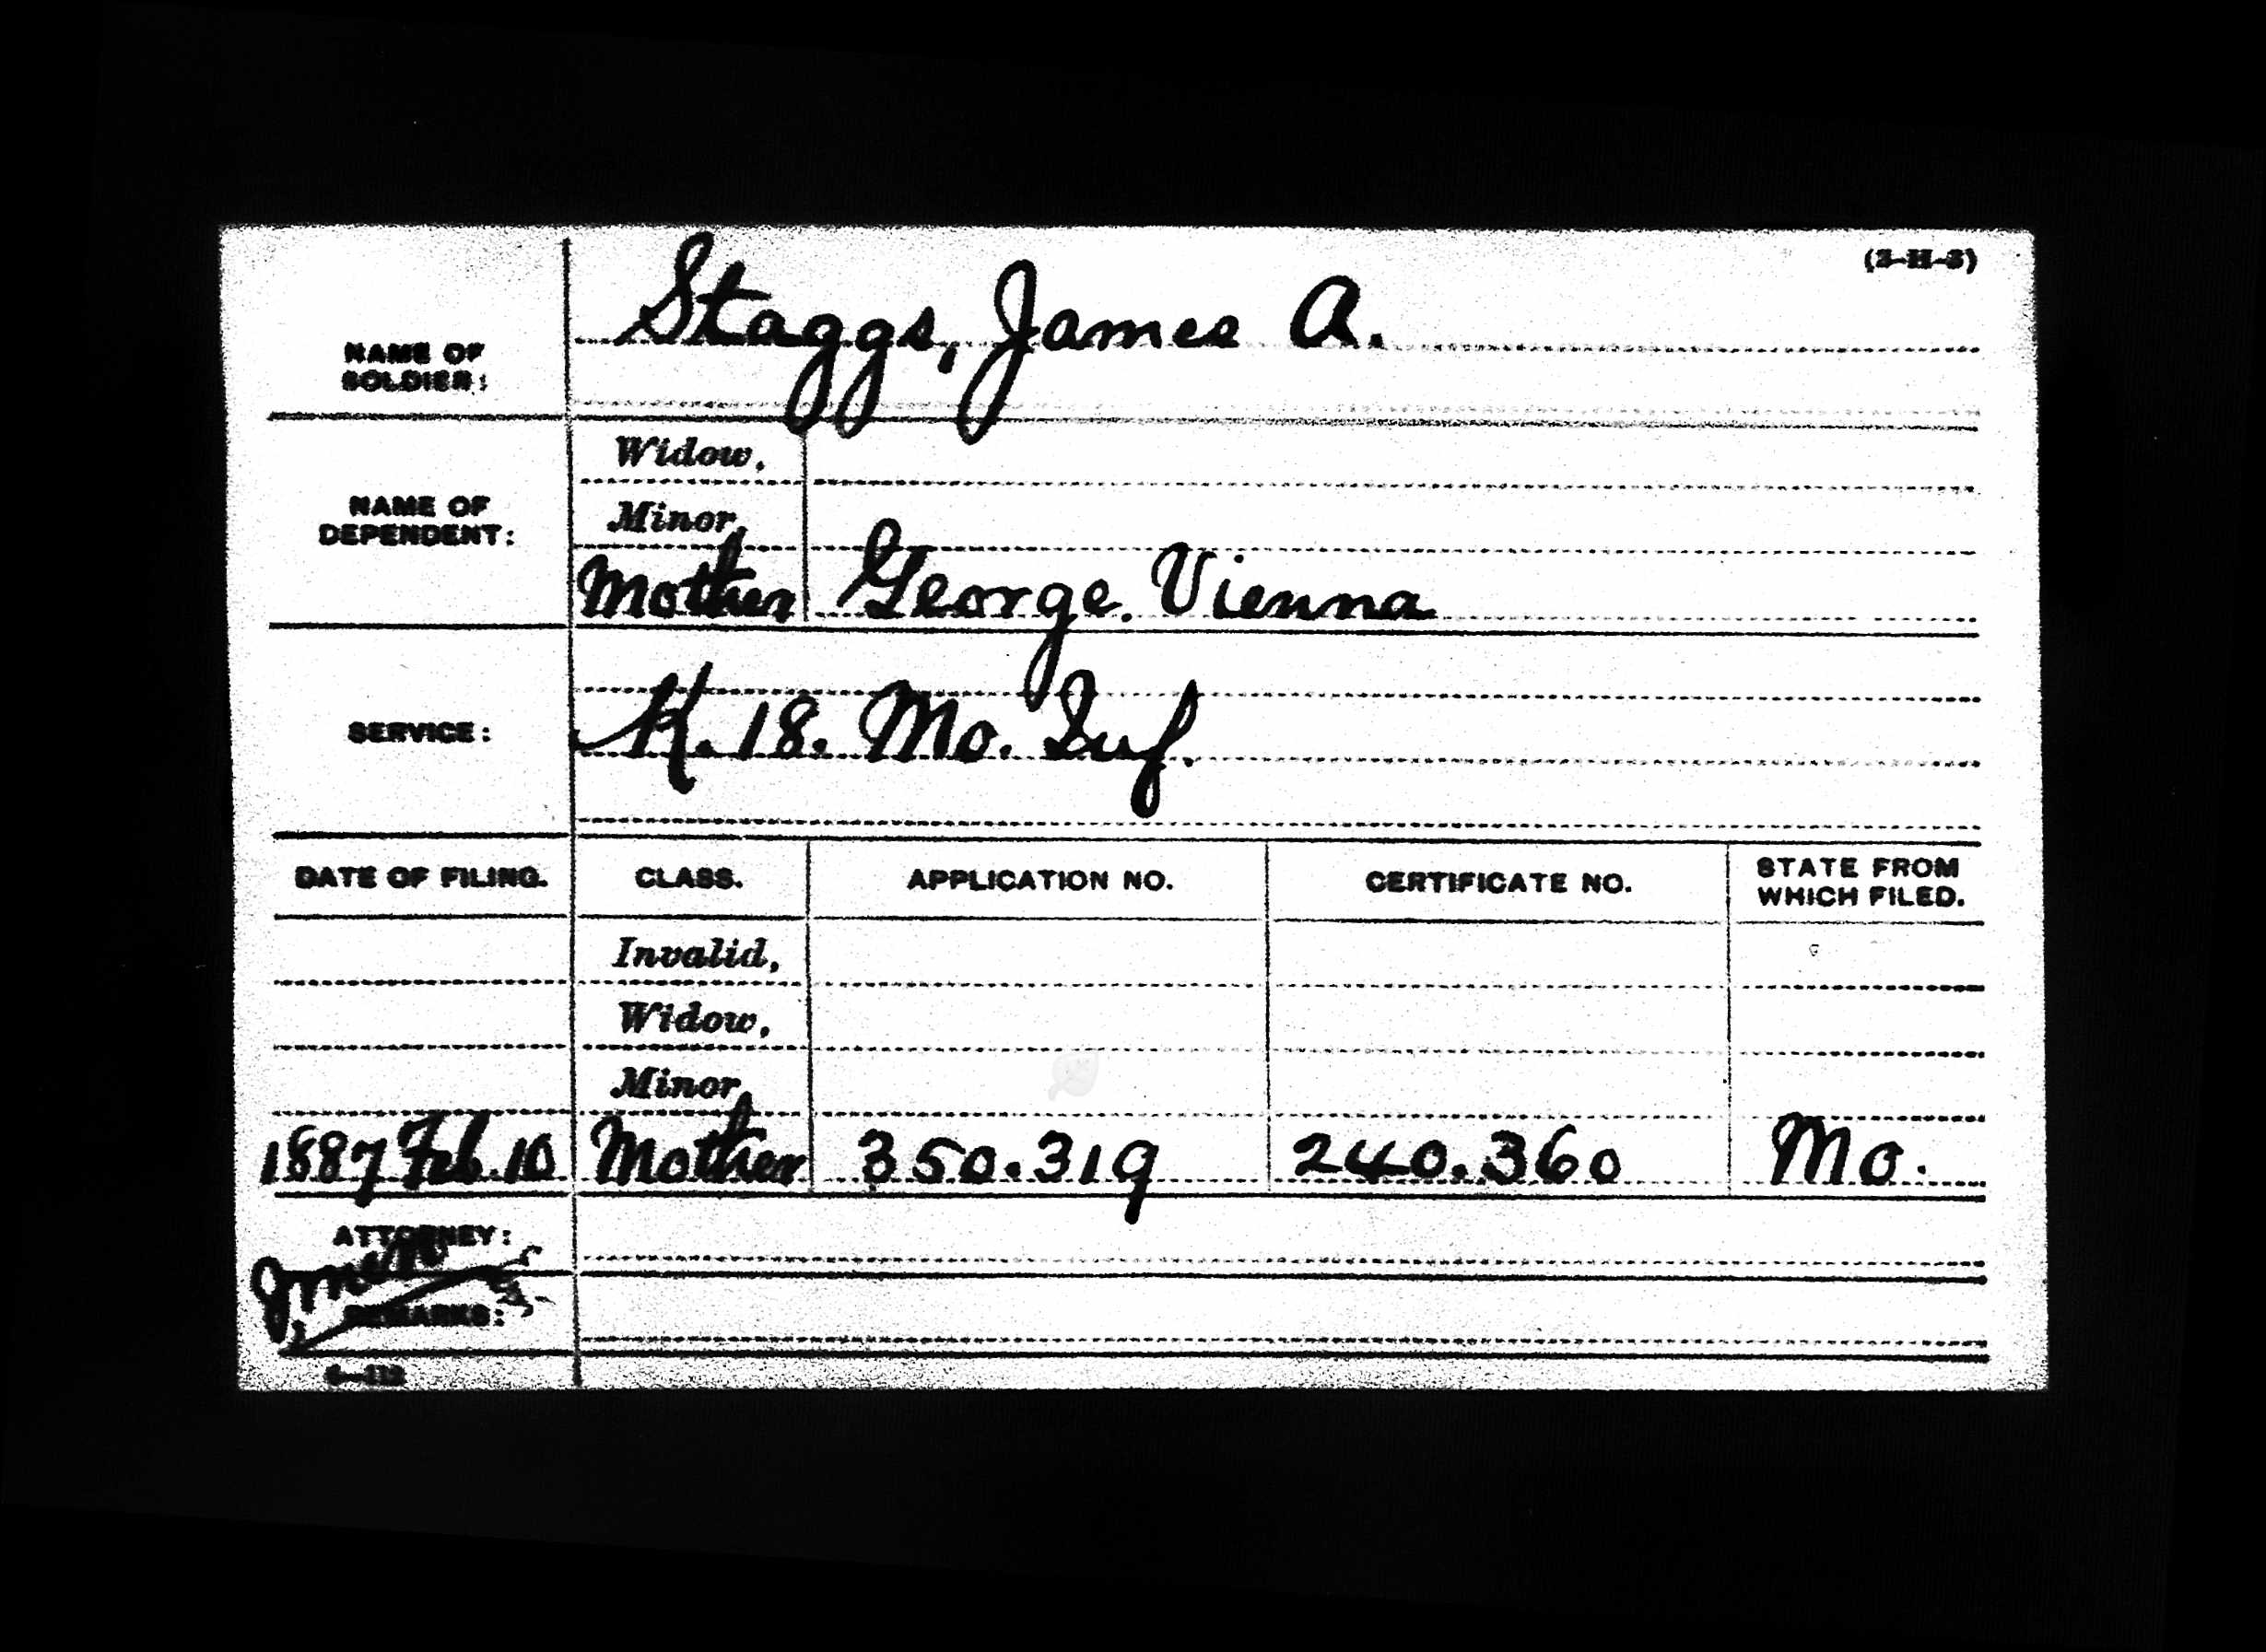 (3-H-3)
NAME OF SOLDIER: Staggs, James A.
NAME OF DEPENDENT:
Widow,
Minor,
Mother George. Vienna
SERVICE: K. 18. Mo. Inf.
DATE OF FILING. CLASS. APPLICATION NO. CERTIFICATE NO. STATE FROM WHICH FILED.
Invalid,
Widow,
Minor,
1887 Feb. 10 Mother 350.319 240.360 Mo.
ATTORNEY:
REMARKS: